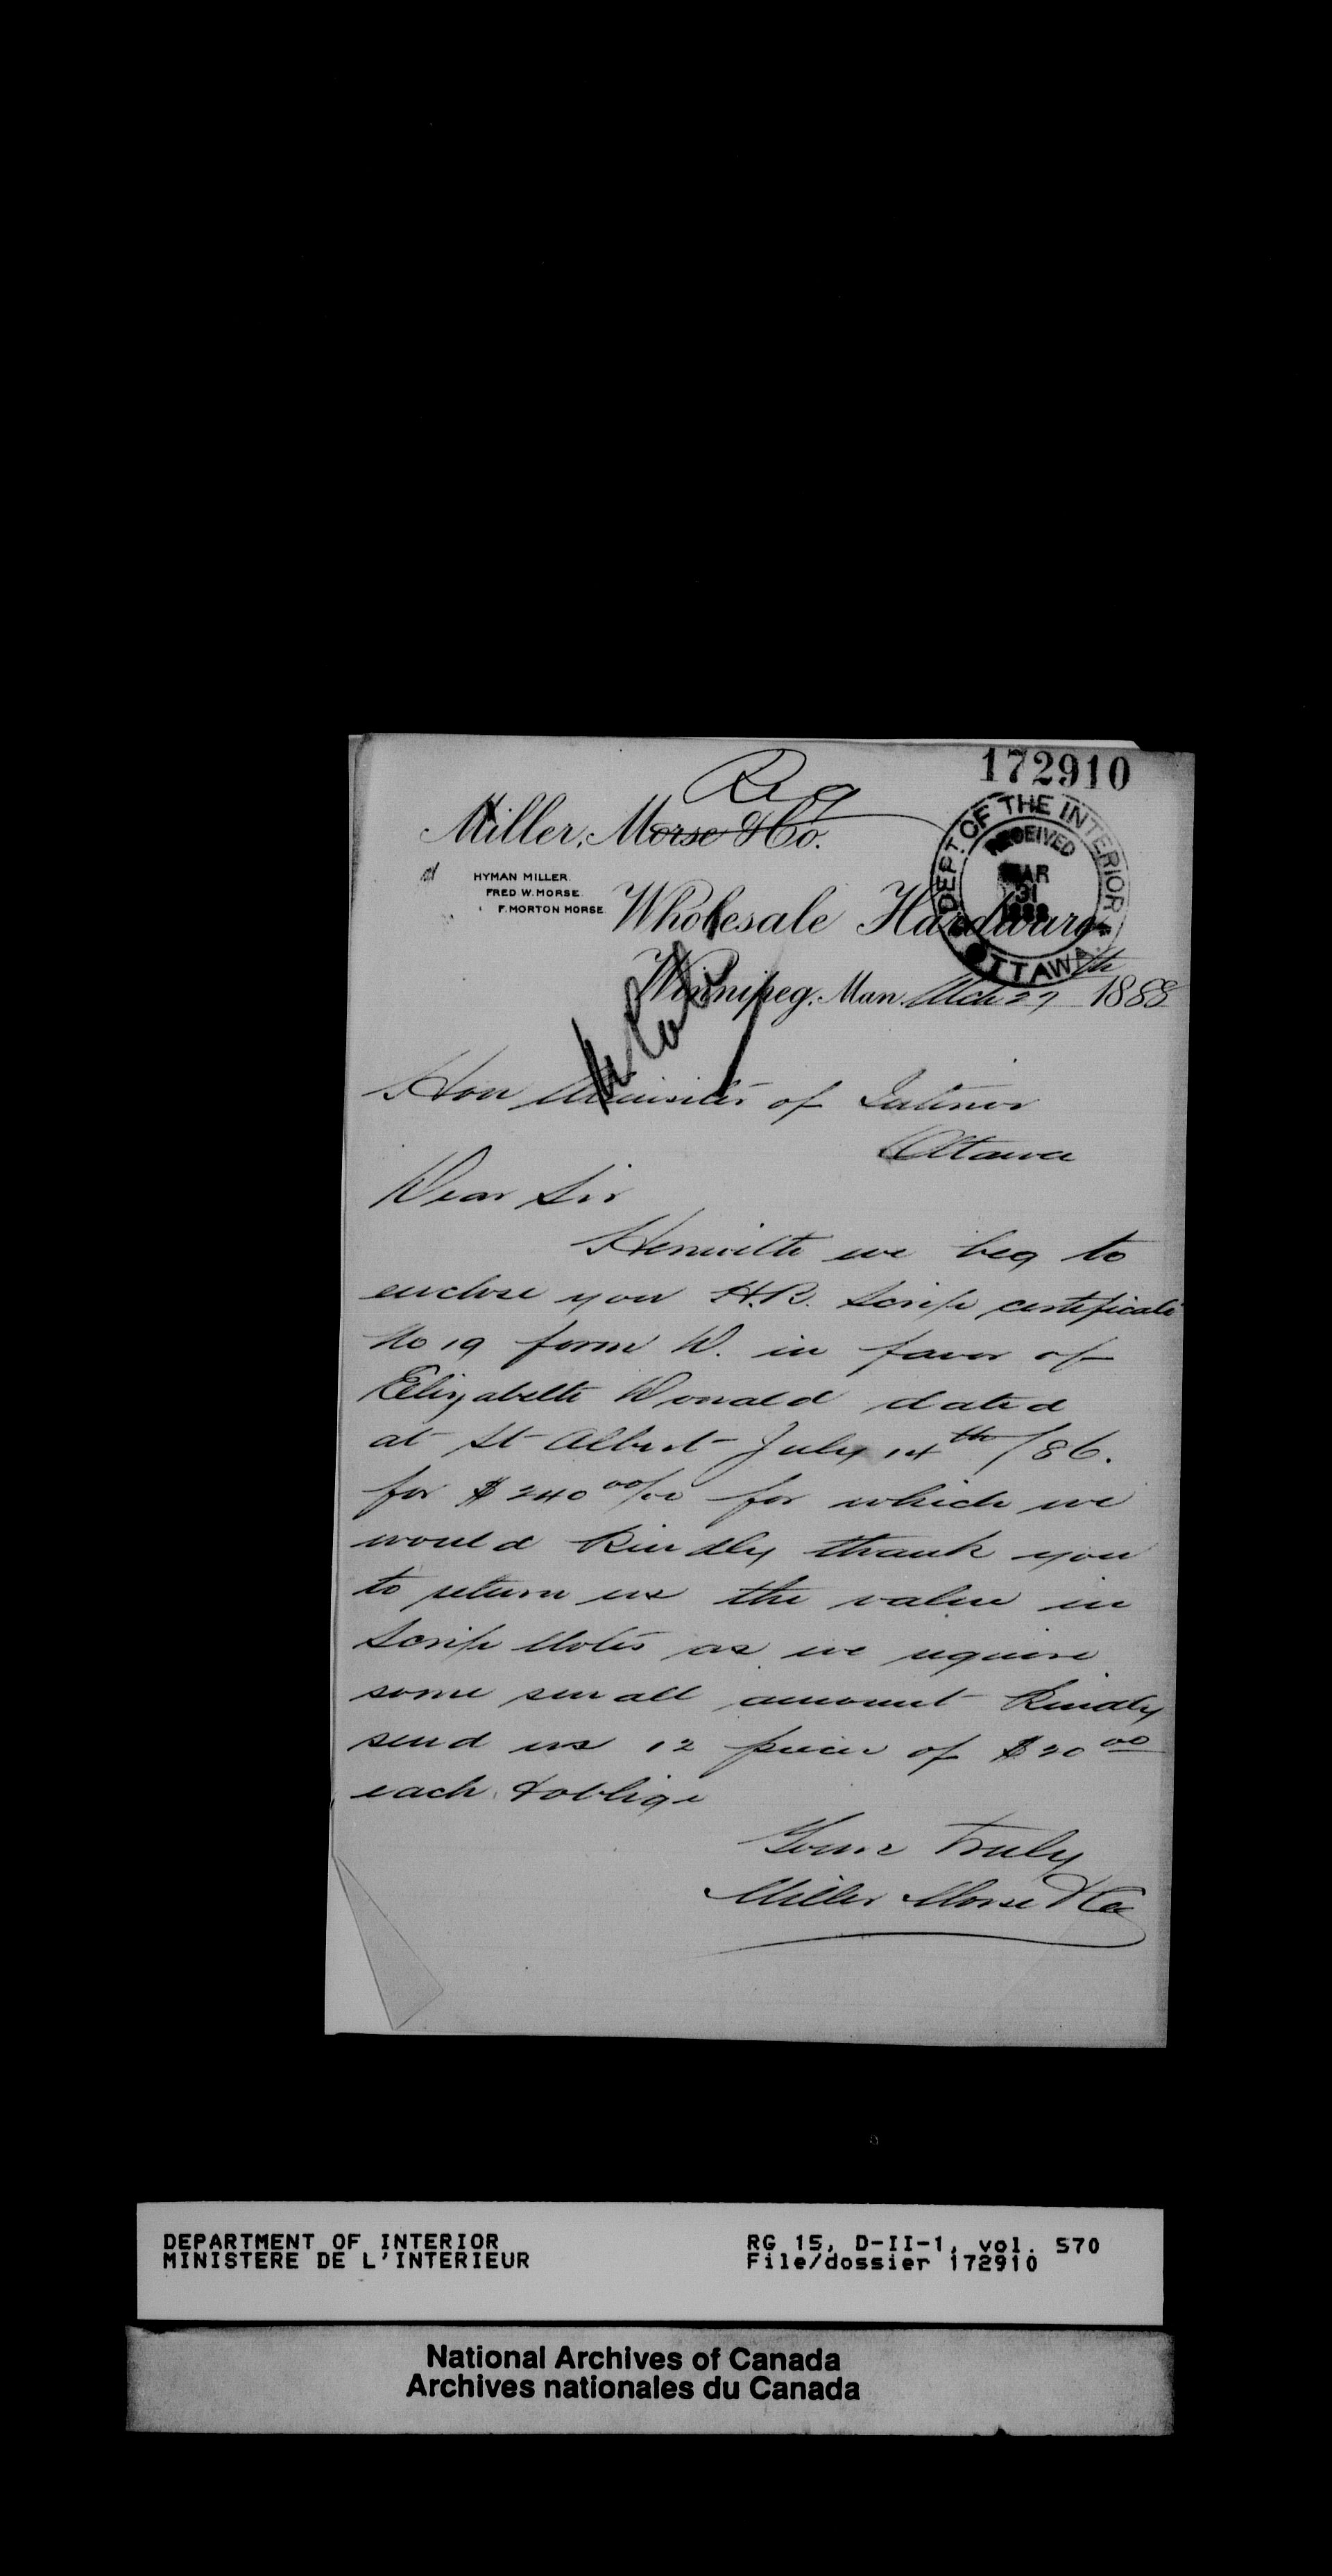 172910
Reg
Miller, Morse & Co.
HYMAN MILLER.
FRED W. MORSE.
F. MORTON MORSE.
DEPT. OF THE INTERIOR
RECEIVED
MAR
31
1888
OTTAWA
Wholesale Hardware
Winnipeg, Man. Mch 27th 1888
Hon Minister of Interior
Ottawa
Dear Sir
Herewith we beg to
enclose you H.B. Scrip certificate
No 19 form D. in favor of
Elizabeth Donald dated
at St Albert July 14th/86.
for $240 00/00 for which we
would kindly thank you
to return us the value in
Scrip Notes as we require
some small amount Kindly
send us 12 pieces of $20 00
each & oblige
Yours Truly
Miller Morse & Co
DEPARTMENT OF INTERIOR
MINISTERE DE L'INTERIEUR
RG 15, D-II-1, vol. 570
File/dossier 172910
National Archives of Canada
Archives nationales du Canada